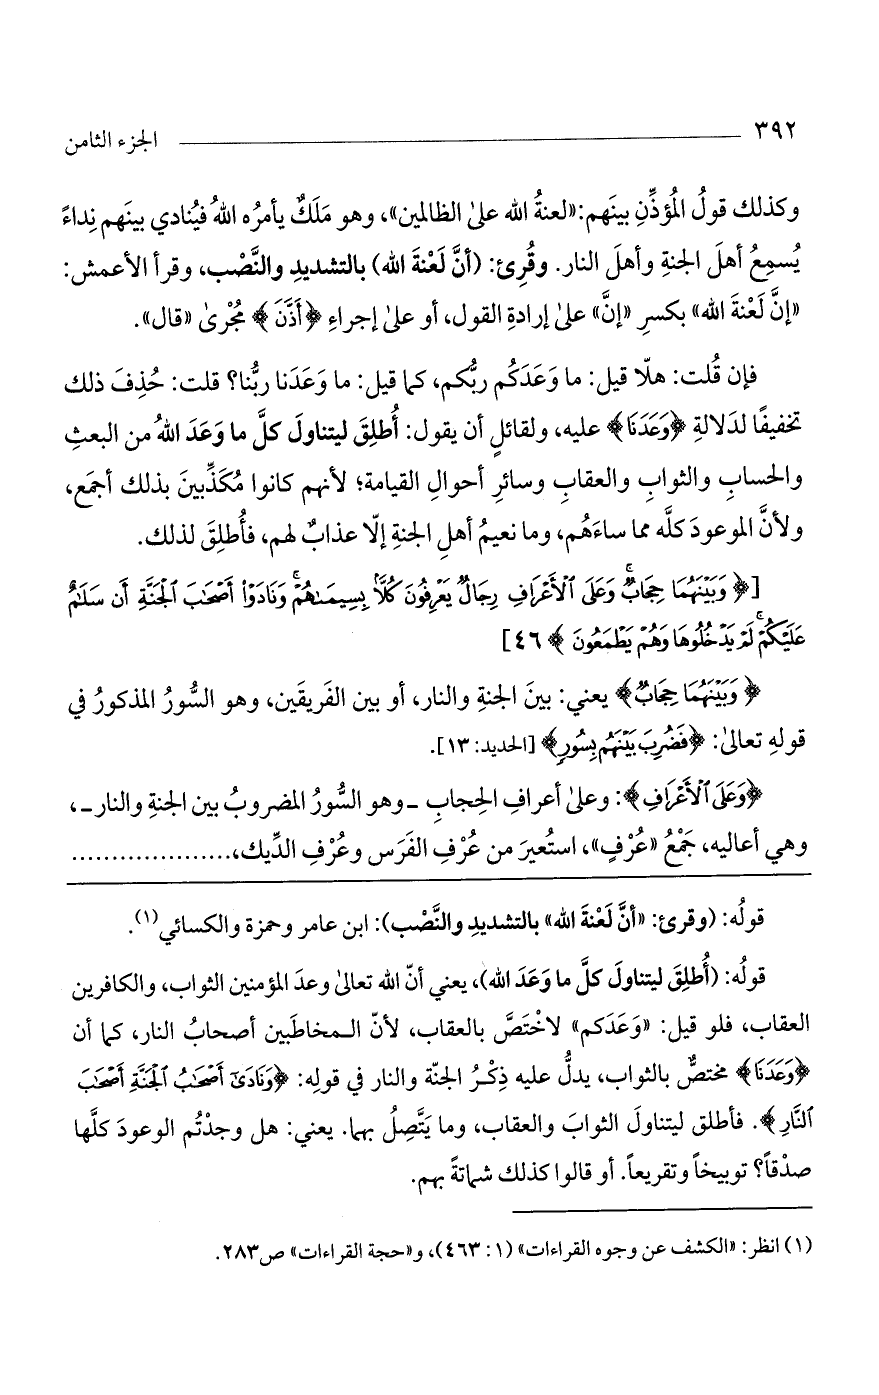 ٣٩٢ الجزء الثامن
وكذلك قولُ المُؤذِّنِ بينَهم:«لعنةُ الله على الظالمين»، وهو مَلَكٌ يأمرُه اللهُ فيُنادي بينَهم نِداءً
يُسمِعُ أهلَ الجنةِ وأهلَ النار. وقُرِئ: (أنَّ لَعْنةَ الله) بالتشديدِ والنَّصْب، وقرأ الأعمش:
«إنَّ لَعْنةَ الله» بكسرِ «إنَّ» على إرادةِ القول، أو على إجراءِ ﴿أَذَّنَ﴾ مُجْرىٰ «قال».
فإن قُلت: هلّا قيل: ما وَعَدَكُم ربُّكم، كما قيل: ما وَعَدَنا ربُّنا؟ قلت: حُذِفَ ذلك
تخفيفًا لدَلالةِ ﴿وَعَدَنَا﴾ عليه، ولقائلٍ أن يقول: أُطلِقَ ليتناولَ كلَّ ما وَعَدَ اللهُ من البعثِ
والحسابِ والثوابِ والعقابِ وسائرِ أحوالِ القيامة؛ لأنهم كانوا مُكَذِّبينَ بذلك أجمَع،
ولأنَّ الموعودَ كلَّه مما ساءَهُم، وما نعيمُ أهلِ الجنةِ إلّا عذابٌ لهم، فأُطلِقَ لذلك.
[﴿ وَبَيْنَهُمَا حِجَابٌ ۚ وَعَلَى ٱلْأَعْرَافِ رِجَالٌ يَعْرِفُونَ كُلًّۢا بِسِيمَىٰهُمْ ۚ وَنَادَوْا۟ أَصْحَٰبَ ٱلْجَنَّةِ أَن سَلَٰمٌ
عَلَيْكُمْ ۚ لَمْ يَدْخُلُوهَا وَهُمْ يَطْمَعُونَ ﴾ ٤٦]
﴿ وَبَيْنَهُمَا حِجَابٌ﴾ يعني: بينَ الجنةِ والنار، أو بين الفَريقَين، وهو السُّورُ المذكورُ في
قولهِ تعالىٰ: ﴿فَضُرِبَ بَيْنَهُم بِسُورٍ﴾ [الحديد: ١٣].
﴿وَعَلَى ٱلْأَعْرَافِ﴾: وعلىٰ أعرافِ الحِجابِ ـ وهو السُّورُ المضروبُ بين الجنةِ والنار ـ،
وهي أعاليه، جَمْعُ «عُرْفٍ»، استُعيرَ من عُرْفِ الفَرَس وعُرْفِ الدِّيك،....................
قولُه: (وقرئ: «أنَّ لَعْنةَ الله» بالتشديدِ والنَّصْب): ابن عامر وحمزة والكسائي(١).
قولُه: (أُطلِقَ ليتناولَ كلَّ ما وَعَدَ الله)، يعني أنّ الله تعالىٰ وعدَ المؤمنين الثواب، والكافرين
العقاب، فلو قيل: «وَعَدَكم» لاخْتَصَّ بالعقاب، لأنّ المخاطَبين أصحابُ النار، كما أن
﴿وَعَدَنَا﴾ مختصٌّ بالثواب، يدلُّ عليه ذِكْرُ الجنّة والنار في قولِه: ﴿وَنَادَىٰٓ أَصْحَٰبُ ٱلْجَنَّةِ أَصْحَٰبَ
ٱلنَّارِ﴾. فأطلق ليتناولَ الثوابَ والعقاب، وما يَتَّصِلُ بهما. يعني: هل وجدْتُم الوعودَ كلَّها
صدْقاً؟ توبيخاً وتقريعاً. أو قالوا كذلك شماتةً بهم.
(١) انظر: «الكشف عن وجوه القراءات» (١: ٤٦٣)، و«حجة القراءات» ص٢٨٣.